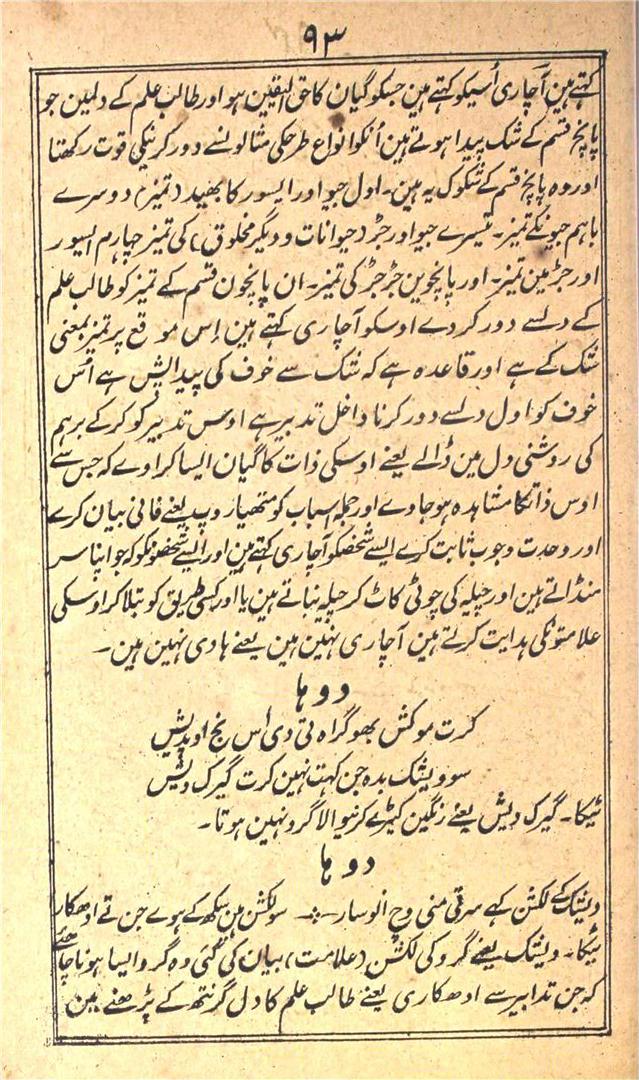 ۹۳
کہتے ہین آچاری اُسیکو کہتے ہین جسکو گیان کا حق الیقین ہو اور طالب علم کے دلمین جو
پانچ قسم کے شک پیدا ہوتے ہین اُنکو انواع طرحکی مثالونسے دور کرنیکی قوت رکھتا
اور وہ پانچ قسم کے شکوک یہ ہین۔ اول جیو اور ایسور کا بھید (تمیز) دوسرے
باہم جیونکے تمیز۔ تیسرے جیو اور جڑ (حیوانات و دیگر مخلوق) کی تمیز چہارم ایسور
اور جڑ مین تمیز۔ اور پانچوین جڑ جڑ کی تمیز۔ ان پانچون قسم کے تمیز کو طالب علم
کے دلسے دور کر دے اوسکو آچاری کہتے ہین اِس موقع پر تمیز بمعنی
شک کے ہے اور قاعدہ ہے کہ شک سے خوف کی پیدایش ہے اُس
خوف کو اول دلسے دور کرنا داخل تدبیر ہے اوس تدبیر کو کر کے برہم
کی روشنی دل مین ڈالے یعنے اوسکی ذات کا گیان ایسا کراوے کہ جس سے
اوس ذاتکا مشاہدہ ہو جاوے اور جملہ اسباب کو متھیا روپ یعنے فانی بیان کرے
اور وحدت وجوب ثابت کرے ایسے شخصکو آچاری کہتے ہین اور ایسے شخصونکو کہ جو اپنا سر
منڈاتے ہین اور چیلہ کی چوٹی کاٹ کر چیلہ بناتے ہین یا اور کسی طریق کو بتلا کر اوسکی
علامتونکی ہدایت کرتے ہین آچاری نہین ہین یعنے ہادی نہین ہین۔
دوہا
کرت موکش بھو گراہ تی دی اُس نج اوپدیش
سو ویشک بدہ جن کہت نہین کرت گیرک ویش
ٹیکا۔ گیرک ویش یعنے رنگین کپڑے کرنیوالا گرو نہین ہوتا۔
دوہا
ویشک کے لکشن کہے سرتی منی وچ انوسار سو لکشن ہین سکھ کے ہوے جن تے ادھکار
ٹیکا۔ ویشک یعنے گرو کی لکشن (علامت) بیان کی گئی وہ گرو ایسا ہونا چاہئے
کہ جن تدابیر سے ادھکاری یعنے طالب علم کا دل گرنتھ کے پڑھنے مین